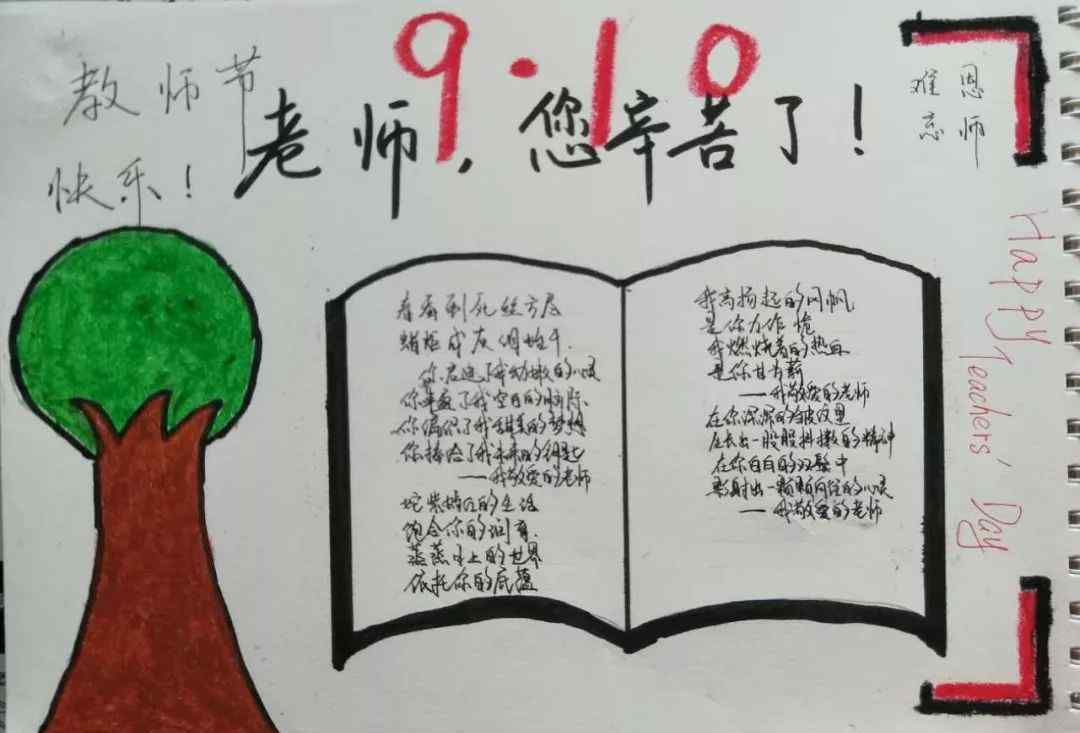 9·10
教师节
快乐!
老师,您辛苦了!
恩师
难忘
Happy Teachers' Day
春蚕到死丝方尽
蜡炬成灰泪始干.
你点速了我幼嫩的心灵
你丰最了我空白的脑际、
你编织了我甜美的梦想
你捧给了我未来的钥匙
——我敬爱的老师
姹紫嫣红的生活
饱含你的润育.
蒸蒸日上的世界
依托你的底蕴
我高扬起的风帆
是你力作桅
我燃烧着的热血
是你甘为薪
——我敬爱的老师
在你深深的皱纹里
生长出一股股抖擞的精神
在你白白的双鬓中
影射出一颗颗向往的心灵
——我敬爱的老师